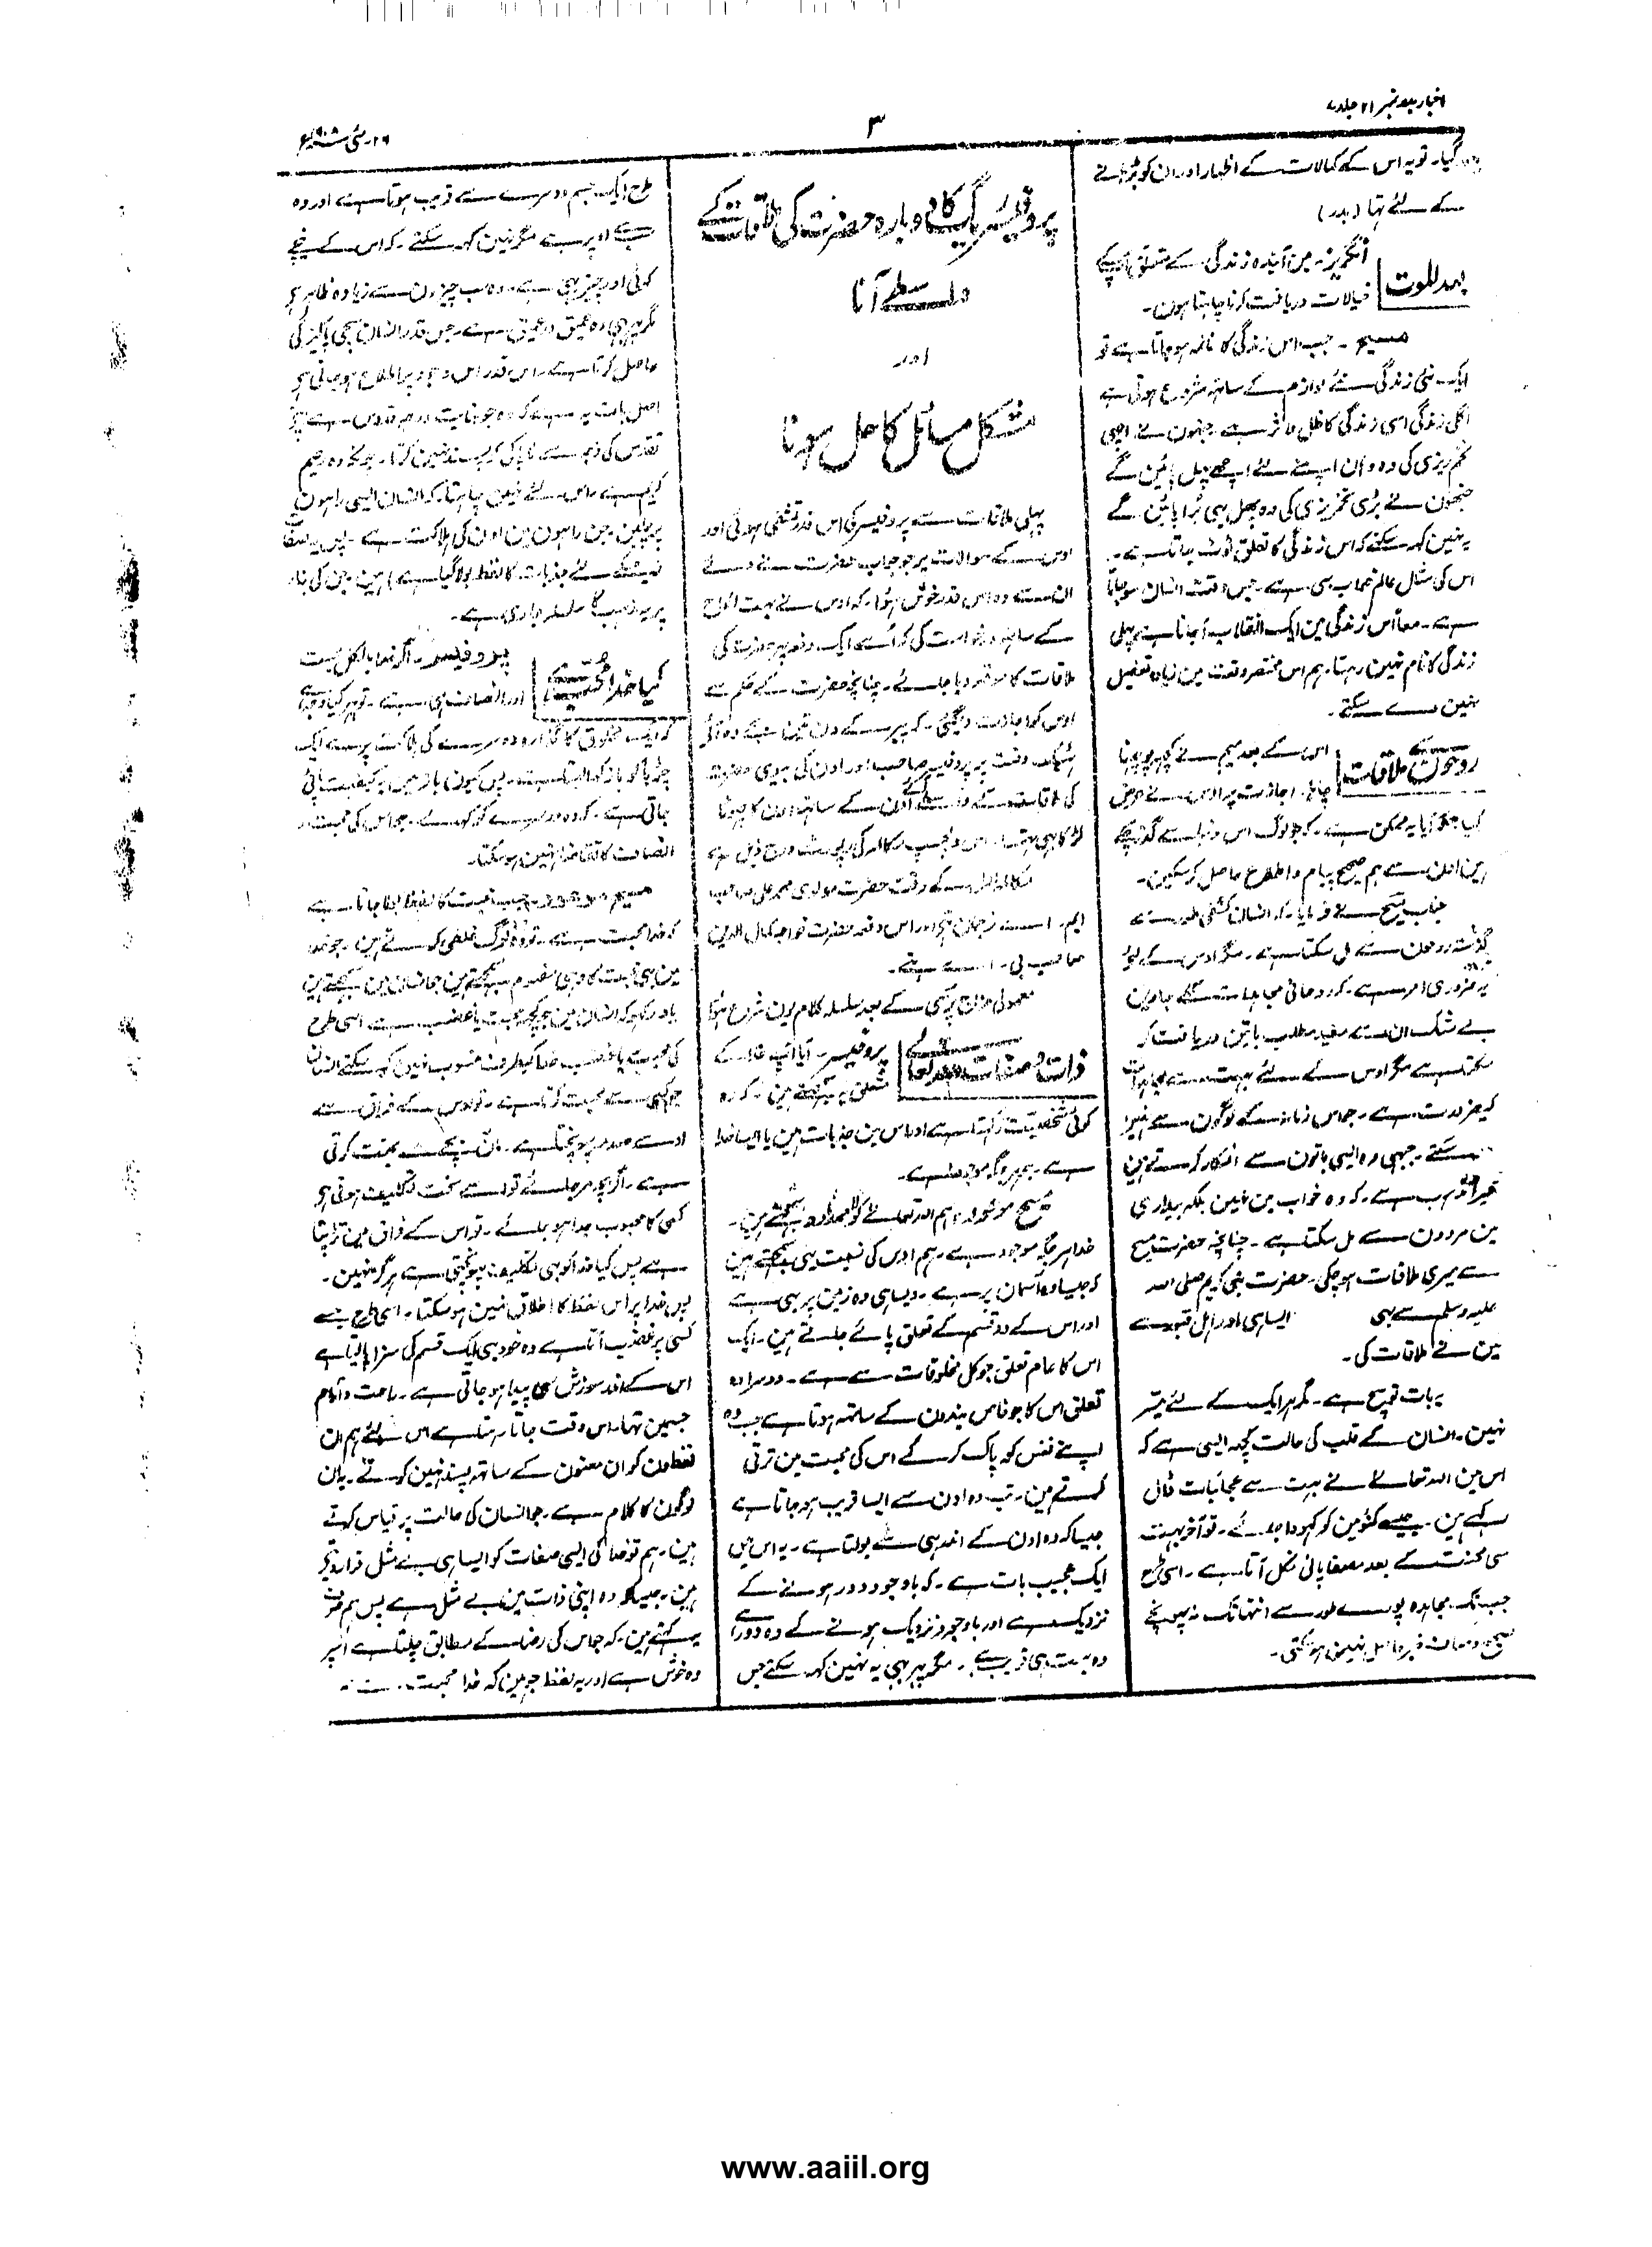 اخبار بدر نمبر ۲۱ جلد ۷
۳
گیا۔ تو یہ اس کے کمالات کے اظہار اور ان کو بڑہانے
کے لئے تہا (بدر)
بعد الموت
انگریز۔ مین آیندہ زندگی کے متعلق آپکے
خیالات دریافت کرنا چاہتا ہون۔
مسیح۔ جب اس زندگی کا خاتمہ ہو جاتا ہے تو
ایک نئی زندگی نئے لوازم کے ساتہہ شروع ہوتی ہے
اگلی زندگی اسی زندگی کا ظل و اثر ہے۔ جنہون نے اچہی
تخم ریزی کی وہ وہان اپنے لئے اچہے پہل پائین گے
جنہون نے بڑی تخمریزی کی وہ پھل بہی بُرا پائین گے
یہ نہین کہہ سکتے کہ اس زندگی کا تعلق ٹوٹ جاتا ہے۔
اس کی مثال عالم خواب سی ہے۔ جس وقت انسان سو جاتا
ہے۔ معاً اس زندگی مین ایک انقلاب آجاتا ہے پہلی
زندگی کا نام نہین رہتا۔ ہم اس مختصر وقت مین زیادہ تفصیل
نہین دے سکتے۔
روحون سے ملاقات
اس کے بعد میم نے کچہہ پوچہنا
چاہا۔ اجازت پر اوس نے عرض
کیا کہ آیا یہ ممکن ہے۔ کہ جو لوگ اس دنیا سے گذر چکے
ہین ان سے ہم صحیح پیام و اطلاع حاصل کر سکین۔
جناب مسیح نے فرمایا۔ کہ انسان کشفی طور سے
گذشتہ روحون سے مل سکتا ہے۔ مگر اوس کے لئے
یہ ضروری امر ہے۔ کہ روحانی مجاہدات کئے جاوین
بے شک ان سے مفید مطلب باتین دریافت کر
سکتا ہے مگر اوس کے لئے بہت سے مجاہدات
کی ضرورت ہے۔ جو اس زمانہ کے لوگون سے نہین
ہو سکتے۔ جبہی وہ ایسی باتون سے انکار کرتے ہین
میرا مذہب ہے۔ کہ وہ خواب مین نہین بلکہ بیداری
مین مردون سے مل سکتا ہے۔ چنانچہ حضرت مسیح
سے میری ملاقات ہو چکی۔ حضرت نبی کریم صلی اللہ
علیہ وسلم سے بہی ایسا ہی اور اہل قبور سے
مین نے ملاقات کی۔
یہ بات تو صحیح ہے۔ مگر ہر ایک کے لئے میسر
نہین۔ انسان کے قلب کی حالت کچہہ ایسی ہے کہ
اس مین اللہ تعالے نے بہت سے عجائبات ڈال
رکہے ہین۔ جیسے کنوئین کو کہودا جائے۔ تو آخر بہت
سی محنت کے بعد مصفا پانی نکل آتا ہے۔ اسی طرح
جب تک مجاہدہ پورے طور سے انتہا تک نہ پہونچے
صحیح و صاف خبر حاصل نہین ہو سکتی۔
پروفیسر ریگ کا دوبارہ حضرت کی ملاقات کے
واسطے آنا
اور
مشکل مسائل کا حل ہونا
پہلی ملاقات سے پروفیسر کی اس قدر تشفی ہوئی اور
اوس کے سوالات پر جو جواب حضرت نے دئے
ان سے وہ اس قدر خوش ہوا۔ کہ اوس نے بہت الحاح
کے ساتہہ درخواست کی کہ اُسے ایک دفعہ پہر حضرت کی
ملاقات کا موقعہ دیا جائے۔ چنانچہ حضرت کے حکم سے
اوس کو اجازت دیگئی۔ کہ پیر کے دن تین بجے وہ آئے
ٹہیک وقت پر پروفیسر صاحب اور اون کی بیوی حضرت
کی ملاقات کے واسطے آئے ان کے ساتہہ اون کا چہوٹا
لڑکا بہی تہا۔ اس دلچسپ مکالمہ کی رپورٹ درج ذیل ہے
مکالمہ اول کے وقت حضرت مولوی محمد علی صاحب
ایم۔ اے ترجمان تہے اور اس دفعہ حضرت خواجہ کمال الدین
صاحب بی۔ اے تہے۔
معمولی مزاج پرسی کے بعد سلسلہ کلام یون شروع ہوا
ذات و صفات خدا تعالے
پروفیسر۔ آیا آپ خدا کے
متعلق یہ سمجہتے ہین۔ کہ وہ
کوئی شخصیت رکہتا ہے اور اس مین جذبات ہین یا ایسا خدا
ہے جو ہر جگہ موجود ہے۔
مسیح موعود۔ ہم اللہ تعالے کو لا محدود سمجہتے ہین۔
خدا ہر جگہ موجود ہے۔ ہم اوس کی نسبت یہی سمجہتے ہین
کہ جیسا وہ آسمان پر ہے۔ ویسا ہی وہ زمین پر بہی ہے
اور اس کے دو قسم کے تعلق پائے جاتے ہین۔ ایک
اس کا عام تعلق جو کل مخلوقات سے ہے۔ دوسرا وہ
تعلق اس کا جو خاص بندون کے ساتہہ ہوتا ہے جب وہ
اپنے نفس کو پاک کر کے اس کی محبت مین ترقی
کرتے ہین۔ تب وہ اون سے ایسا قریب ہو جاتا ہے
جیسا کہ وہ اون کے اندر ہی سے بولتا ہے۔ یہ اس مین
ایک عجیب بات ہے۔ کہ باوجود دور ہونے کے
نزدیک ہے اور باوجود نزدیک ہونے کے وہ دور ہے
وہ بہت ہی قریب ہے۔ مگر پہر بہی یہ نہین کہہ سکتے جس
طرح ایک جسم دوسرے سے قریب ہوتا ہے اور وہ
سب سے اوپر ہے مگر نہین کہہ سکتے۔ کہ اس کے نیچے
کوئی اور چیز بہی ہے۔ وہ سب چیزون سے زیادہ ظاہر ہے
مگر پہر بہی وہ عمیق در عمیق ہے۔ جس قدر انسان سچی پاکیزگی
حاصل کرتا ہے۔ اس قدر اس وجود پر اطلاع ہو جاتی ہے
اصل بات یہ ہے کہ وہ جو نہایت درجہ قدوس ہے اپنے
تقدس کی وجہ سے ناپاکی کو پسند نہین کرتا۔ چونکہ وہ رحیم
کریم ہے۔ اس لئے نہین چاہتا۔ کہ انسان ایسی راہون
پر چلین جن راہون مین اون کی ہلاکت ہے۔ پس یہ صفات
جنکے لئے جذبات کا لفظ بولا گیا ہے) ہین جن کی بنا
پر یہ مذہب کا سلسلہ جاری ہے۔
کیا خدا محبت ہے
پروفیسر۔ اگر خدا بالکل محبت
اور انصاف ہی ہے۔ تو پہر کیا وجہ ہے
کہ ایک مخلوق کا گذارہ دوسرے کی ہلاکت پر ہے ایک
چڑیا کو باز کہا لیتا ہے۔ پس کیون باز مین یہ کیفیت پائی
جاتی ہے۔ کہ وہ دوسرے کو کہائے۔ جو اس کی محبت اور
انصاف کا تقاضا نہین ہو سکتا۔
مسیح موعود۔ جب محبت کا لفظ بولا جاتا ہے
کہ خدا محبت ہے۔ تو وہ لوگ غلطی کرتے ہین۔ جو خدا
مین بہی محبت کا وہی مفہوم سمجہتے ہین جو انسان مین سمجہتے ہین
یاد رکہو کہ انسان مین جو کچہہ محبت یا غضب ہے اسی طرح
کی محبت یا غضب خدا کیطرف منسوب نہین کر سکتے انسان
جو کسی سے محبت کرتا ہے۔ تو اوس کے فراق سے
اوسے صدمہ پہونچتا ہے۔ مان بچے سے محبت کرتی
ہے۔ اگر بچہ مر جائے تو اُسے سخت تکلیف ہوتی ہے
کسی کا محبوب جدا ہو جائے۔ تو اس کے فراق مین تڑپتا
ہے پس کیا خدا کو بہی تکلیف پہونچتی ہے ہرگز نہین۔
پس خدا پر اس لفظ کا اطلاق نہین ہو سکتا۔ اسی طرح جسے
کسی پر غضب آتا ہے وہ خود بہی ایک قسم کی سزا پا لیتا ہے
اس کے اندر سوزش سی پیدا ہو جاتی ہے۔ راحت و آرام
جسمین تہا۔ اس وقت جاتا رہتا ہے اس لئے ہم ان
لفظون کو ان معنون کے ساتہہ پسند نہین کرتے۔ یہ ان
لوگون کا کلام ہے۔ جو انسان کی حالت پر قیاس کرتے
ہین۔ ہم تو خدا کی ایسی صفات کو ایسا ہی بے مثل قرار دیتے
ہین۔ جیسا کہ وہ اپنی ذات مین بے مثل ہے پس ہم صرف
یہ کہتے ہین۔ کہ جو اس کی رضا کے مطابق چلتا ہے اسپر
وہ خوش ہے اور یہ لفظ جو ہین کہ خدا محبت ہے۔
www.aaiil.org